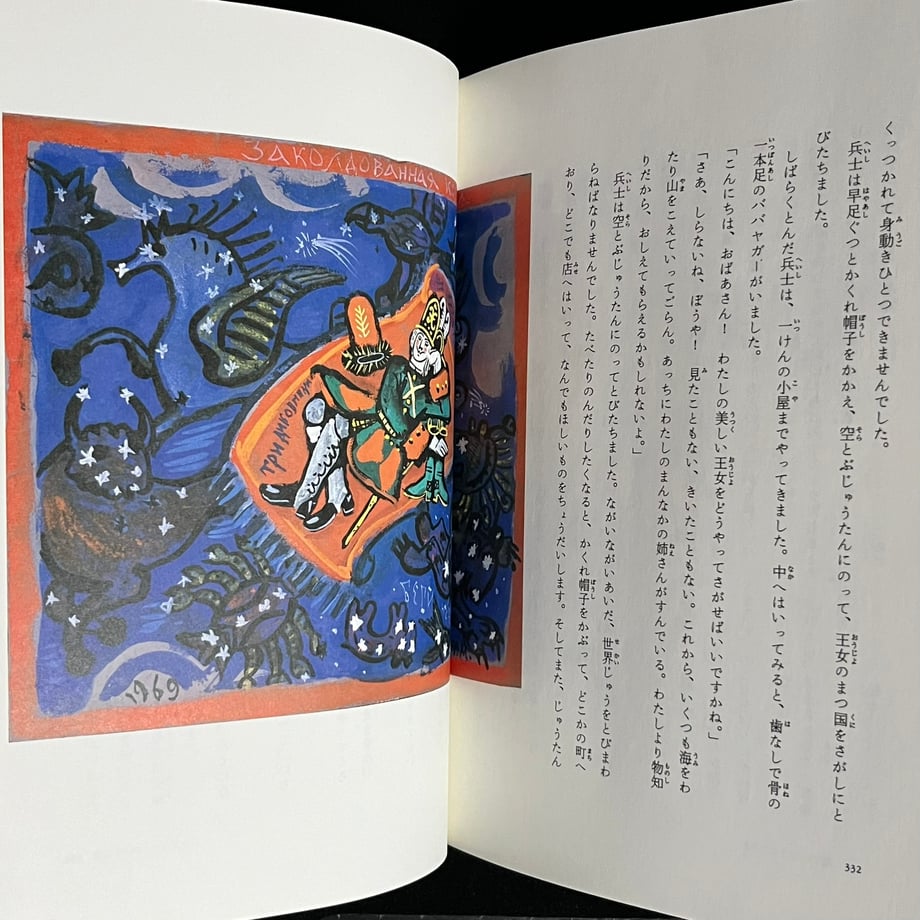 くっつかれて身動きひとつできませんでした。
兵士は早足ぐつとかくれ帽子をかかえ、空とぶじゅうたんにのって、王女のまつ国をさがしにと
びたちました。
しばらくとんだ兵士は、一けんの小屋までやってきました。中へはいってみると、歯なしで骨の
一本足のババヤガーがいました。
「こんにちは、おばあさん！　わたしの美しい王女をどうやってさがせばいいですかね。」
「さあ、しらないね、ぼうや！　見たこともない、きいたこともない。これから、いくつも海をわ
たり山をこえていってごらん。あっちにわたしのまんなかの姉さんがすんでいる。わたしより物知
りだから、おしえてもらえるかもしれないよ。」
兵士は空とぶじゅうたんにのってとびたちました。ながいながいあいだ、世界じゅうをとびまわ
らねばなりませんでした。たべたりのんだりしたくなると、かくれ帽子をかぶって、どこかの町へ
おり、どこでも店へはいって、なんでもほしいものをちょうだいします。そしてまた、じゅうたん
332
ЗАКОЛДОВАННАЯ К
1969